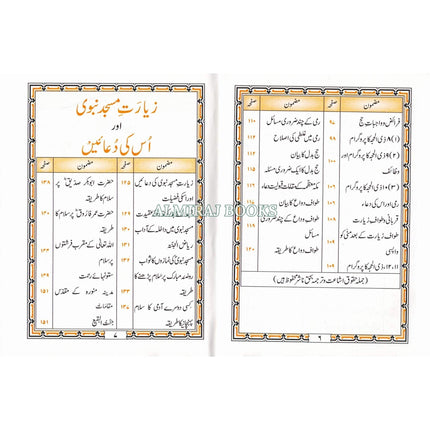 مضمون صفحہ
فرائض و واجبات حج ۹۸
(۱) ۸ ذی الحجہ کا پروگرام ۹۹
(۲) ۹ ذی الحجہ کا پروگرام اور ۱۰۰
وظائف
(۳) ۱۰ ذی الحجہ کا پروگرام ۱۰۹
رمی اور اس کی دعاء ۱۰۹
قربانی و طواف زیارت کے بعد منیٰ کو
واپسی
۱۱، ۱۲ ذی الحجہ کا پروگرام ۱۰۹
مضمون صفحہ
رمی کے چند ضروری مسائل ۱۱۰
رمی میں غلطی کی اصلاح ۱۱۲
حج بدل کا بیان
حج بدل کا مسئلہ
مکہ معظمہ کے مقامات قبولیت دعاء
طواف وداع کا بیان
طواف وداع کے چند ضروری ۱۱۹
مسائل
طواف وداع کا طریقہ ۱۲۰
(جملہ حقوق اشاعت و ترجمہ بحق ناشر محفوظ ہیں)
۶
زیارتِ مسجد نبوی
اور
اُس کی دُعائیں
مضمون صفحہ
زیارت مسجد نبوی کی دعائیں ۱۲۵
اور انکی فضیلت
عقیدت
مسجد نبوی میں داخلہ کے آداب ۱۳۰
ریاض الجنۃ
مسجد نبوی کی نمازوں کا ثواب
روضہ مبارک پر سلام پڑھنے کا
طریقہ
کسی دوسرے آدمی کا سلام ۱۳۷
پہنچانے کا طریقہ
مضمون صفحہ
حضرت ابوبکر صدیقؓ پر ۱۳۸
سلام کا طریقہ
حضرت عمر فاروقؓ پر سلام کا
طریقہ
اللہ تعالیٰ کے مقرب فرشتوں
پر سلام
ستونہائے رحمت
مدینہ منورہ کے مقدس ۱۵۱
مقامات
جنت البقیع ۱۵۱
۷
ALMIRAJ BOOKS